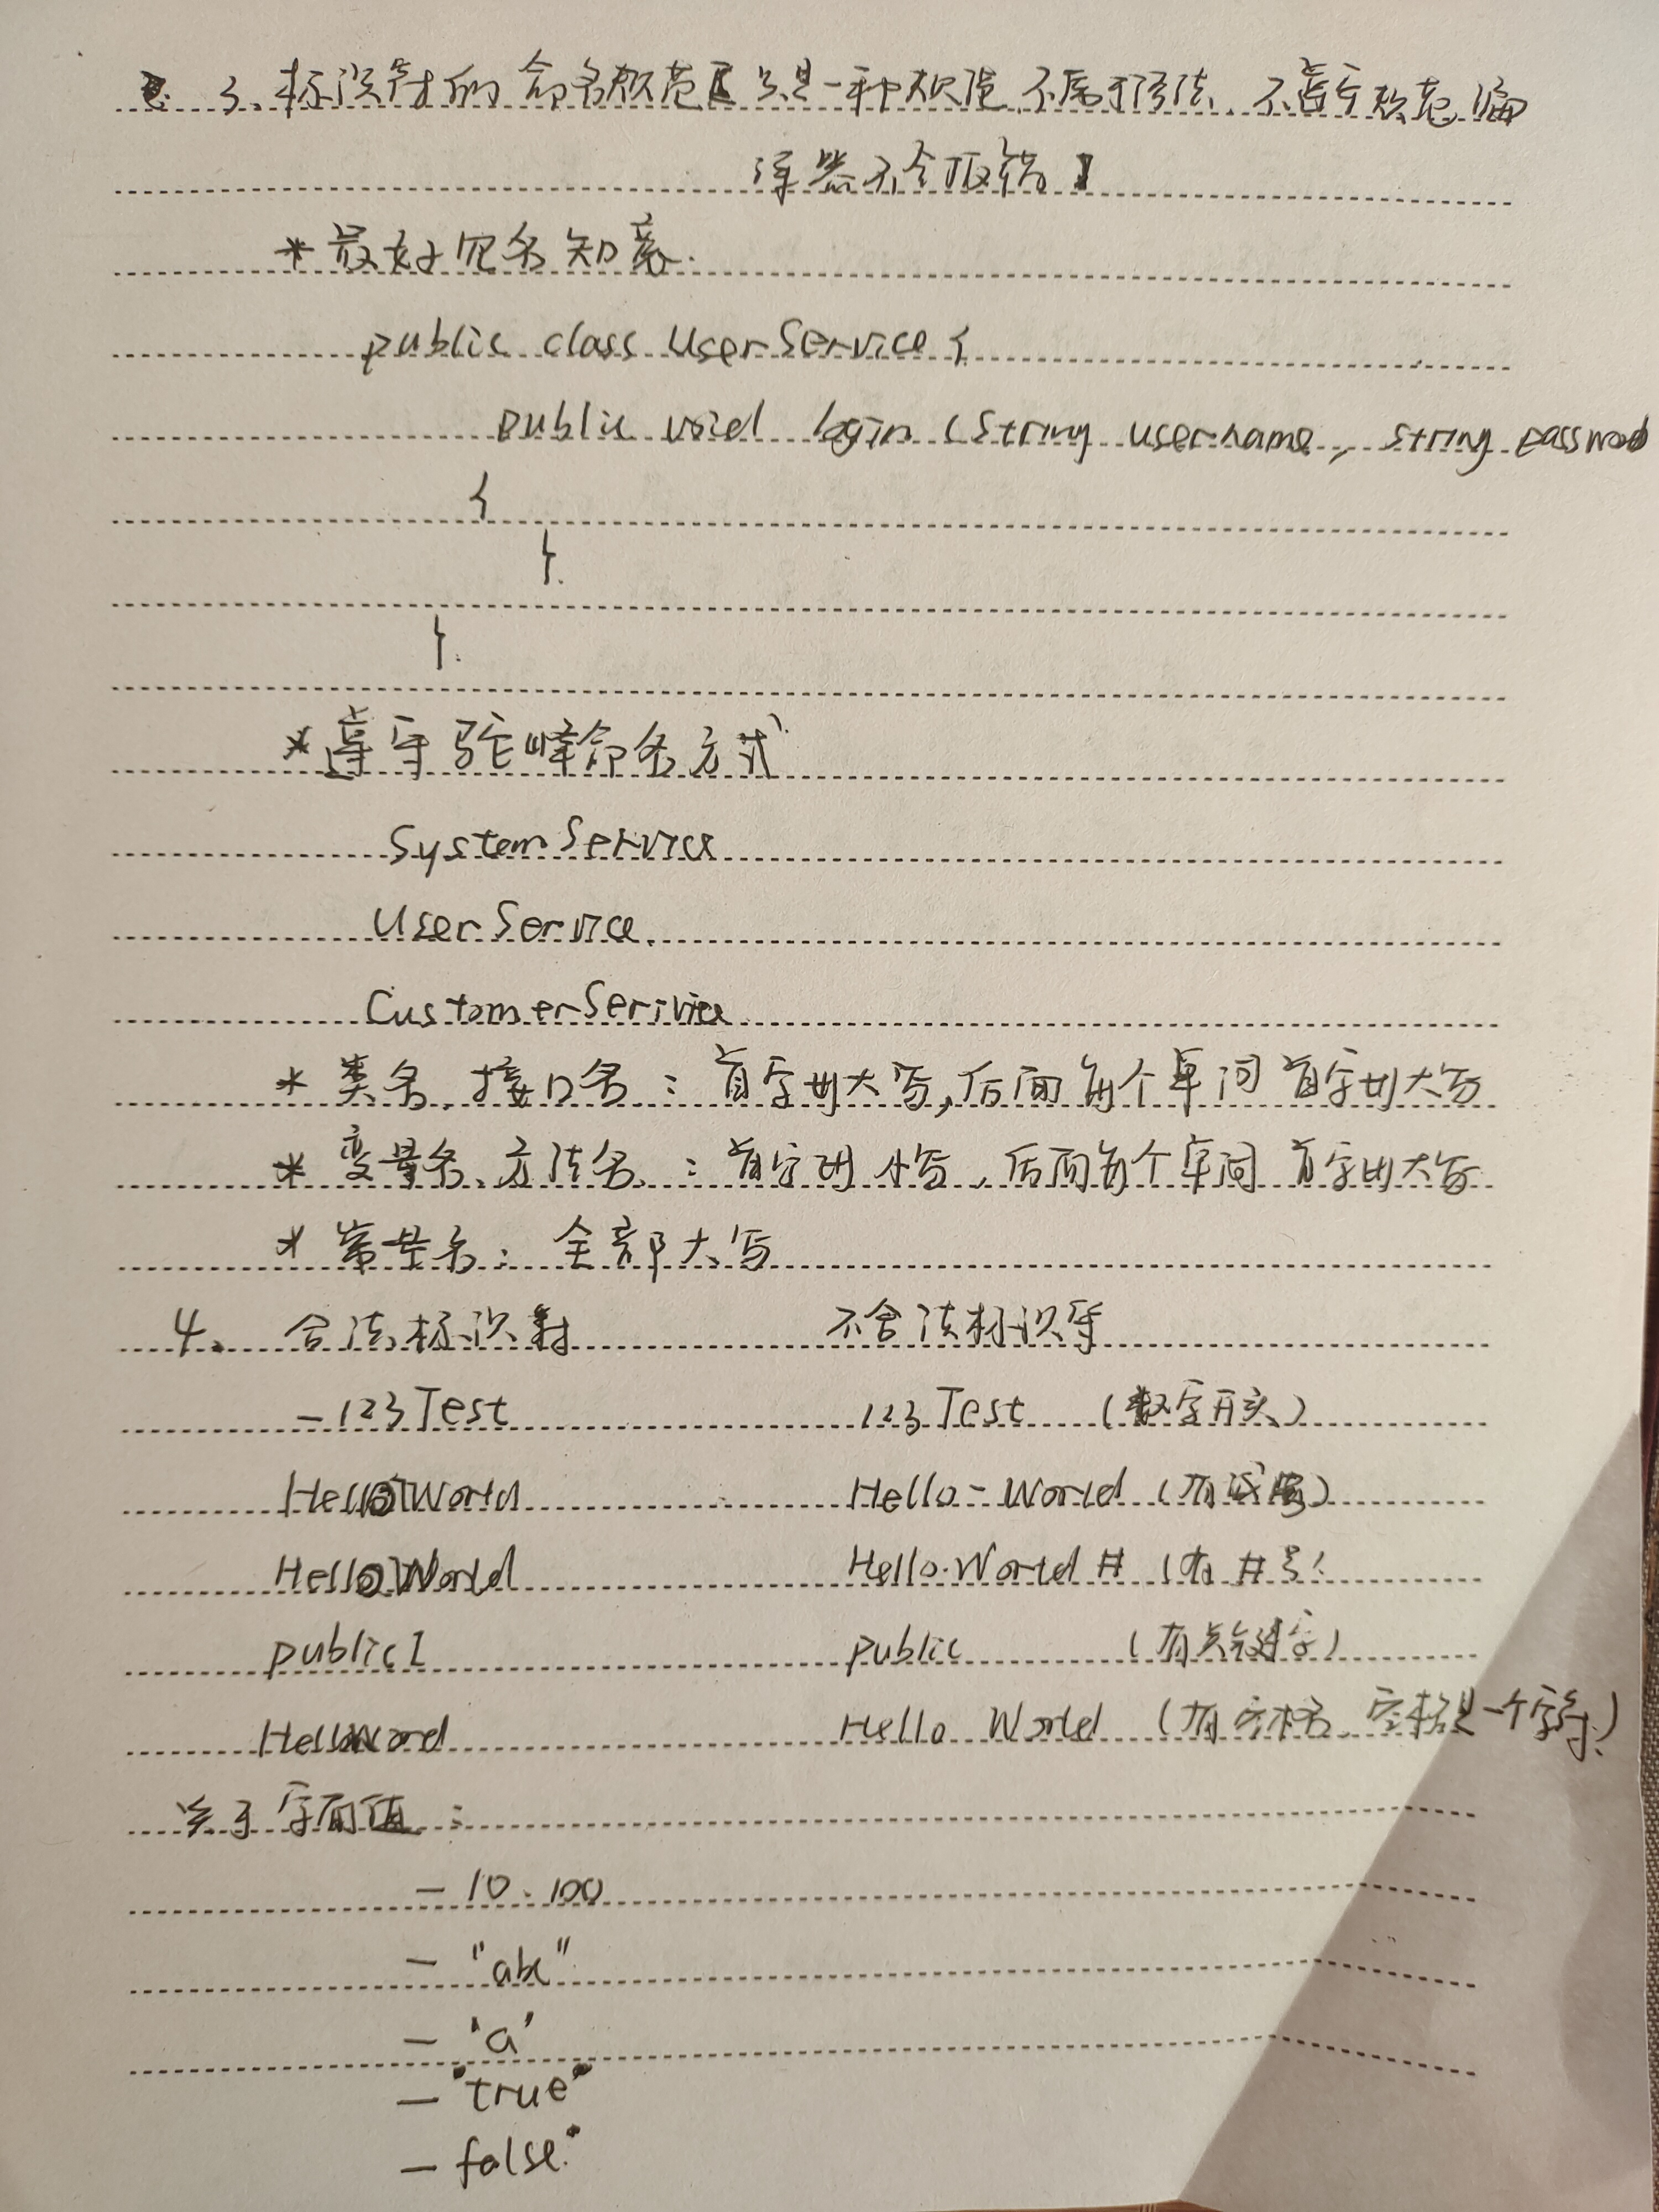 3、标识符的命名规范【只是一种规范,不属于语法,不遵守规范编
译器不会报错】
* 最好见名知意.
public class UserService {
public void login (String username, String password
{
}.
}.
* 遵守驼峰命名方式
SystemService
UserService.
CustomerSerivice
* 类名、接口名:首字母大写,后面每个单词首字母大写
* 变量名、方法名:首字母小写,后面每个单词首字母大写
* 常量名:全部大写
4、 合法标识符 不合法标识符
_123Test 123Test (数字开头)
Hello-World (有减号)
HelloWorld# (有#号)
public1 public (有关键字)
Hello World (有空格,空格是一个字符)
关于字面值:
- 10、100
- "abc"
- 'a'
- "true"
- false"